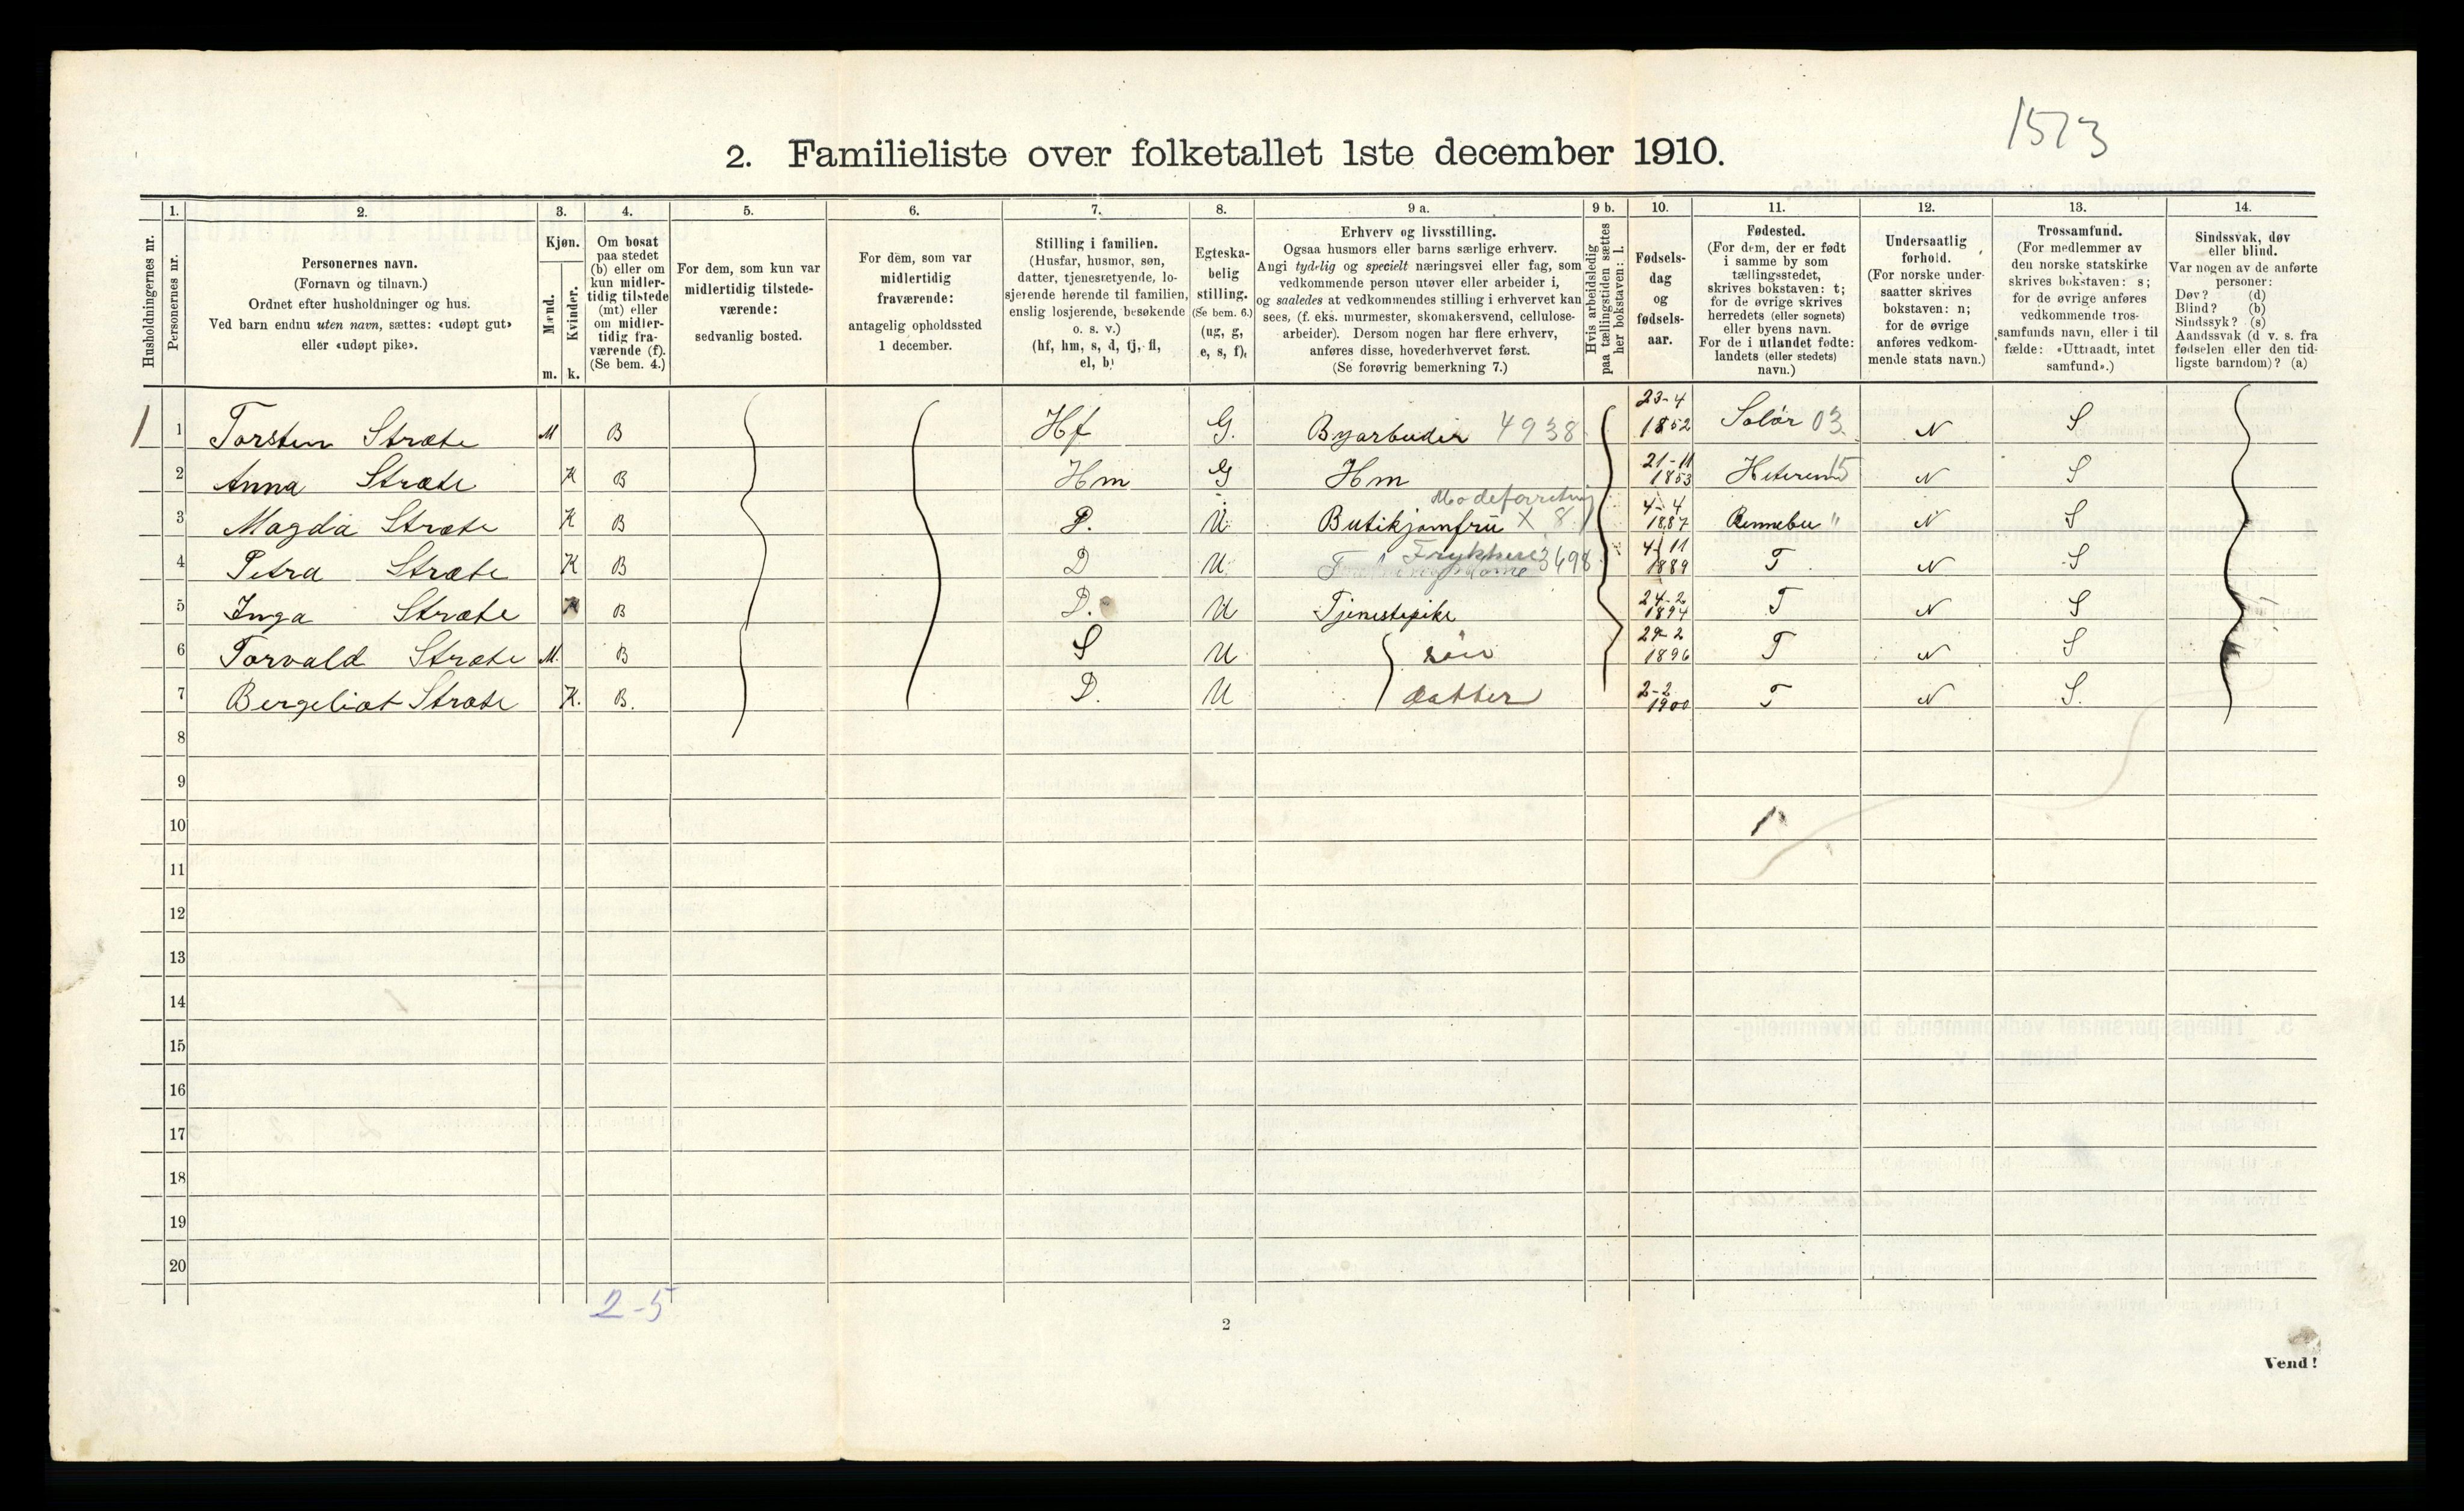 1573
2. Familieliste over folketallet 1ste december 1910.
Husholdningernes nr.
1.
Personernes nr.
2.
Personernes navn.
(Fornavn og tilnavn.)
Ordnet efter husholdninger og hus.
Ved barn endnu uten navn, sættes: «udøpt gut»
eller «udøpt pike».
3.
Kjøn.
Mænd.
Kvinder.
m. k.
4.
Om bosat
paa stedet
(b) eller om
kun midler-
tidig tilstede
(mt) eller
om midler-
tidig fra-
værende (f).
(Se bem. 4.)
5.
For dem, som kun var
midlertidig tilstede-
værende:
sedvanlig bosted.
6.
For dem, som var
midlertidig
fraværende:
antagelig opholdssted
1 december.
7.
Stilling i familien.
(Husfar, husmor, søn,
datter, tjenestetyende, lo-
sjerende hørende til familien,
enslig losjerende, besøkende
o. s. v.)
(hf, hm, s, d, tj, fl,
el, b)
8.
Egteska-
belig
stilling.
(Se bem. 6.)
(ug, g,
e, s, f).
9 a.
Erhverv og livsstilling.
Ogsaa husmors eller barns særlige erhverv.
Angi tydelig og specielt næringsvei eller fag, som
vedkommende person utøver eller arbeider i,
og saaledes at vedkommendes stilling i erhvervet kan
sees, (f. eks. murmester, skomakersvend, cellulose-
arbeider). Dersom nogen har flere erhverv,
anføres disse, hovederhvervet først.
(Se forøvrig bemerkning 7.)
9 b.
Hvis arbeidsledig
paa tællingstiden sættes
her bokstaven: l.
10.
Fødsels-
dag
og
fødsels-
aar.
11.
Fødested.
(For dem, der er født
i samme by som
tællingsstedet,
skrives bokstaven: t;
for de øvrige skrives
herredets (eller sognets)
eller byens navn.
For de i utlandet fødte:
landets (eller stedets)
navn.)
12.
Undersaatlig
forhold.
(For norske under-
saatter skrives
bokstaven: n;
for de øvrige
anføres vedkom-
mende stats navn.)
13.
Trossamfund.
(For medlemmer av
den norske statskirke
skrives bokstaven: s;
for de øvrige anføres
vedkommende tros-
samfunds navn, eller i til
fælde: «Uttraadt, intet
samfund».)
14.
Sindssvak, døv
eller blind.
Var nogen av de anførte
personer:
Døv? (d)
Blind? (b)
Sindssyk? (s)
Aandssvak (d. v. s. fra
fødselen eller den tid-
ligste barndom)? (a)
1 1 Torsten Stræte M B Hf G. Byarbeider 4938 23-4 1852 Solør 03 N S
2 Anna Stræte K B Hm G Hm 21-11 1853 15 N S
Modeforretning
3 Magda Stræte K B D. U Butikjomfru X 8 4-4 1887 Rennebu " N S
4 Petra Stræte K B D U 3498 4-11 1889 T N S
5 Inga Stræte K B D. U Tjenestepike 24-2 1894 T N S
6 Torvald Stræte M. B S U søn 29-2 1896 T N S
7 Bergeliot Stræte K. B. D. U datter 2-2 1900 T N S.
8
9
10
11
12
13
14
15
16
17
18
19
20
2-5
2
Vend!